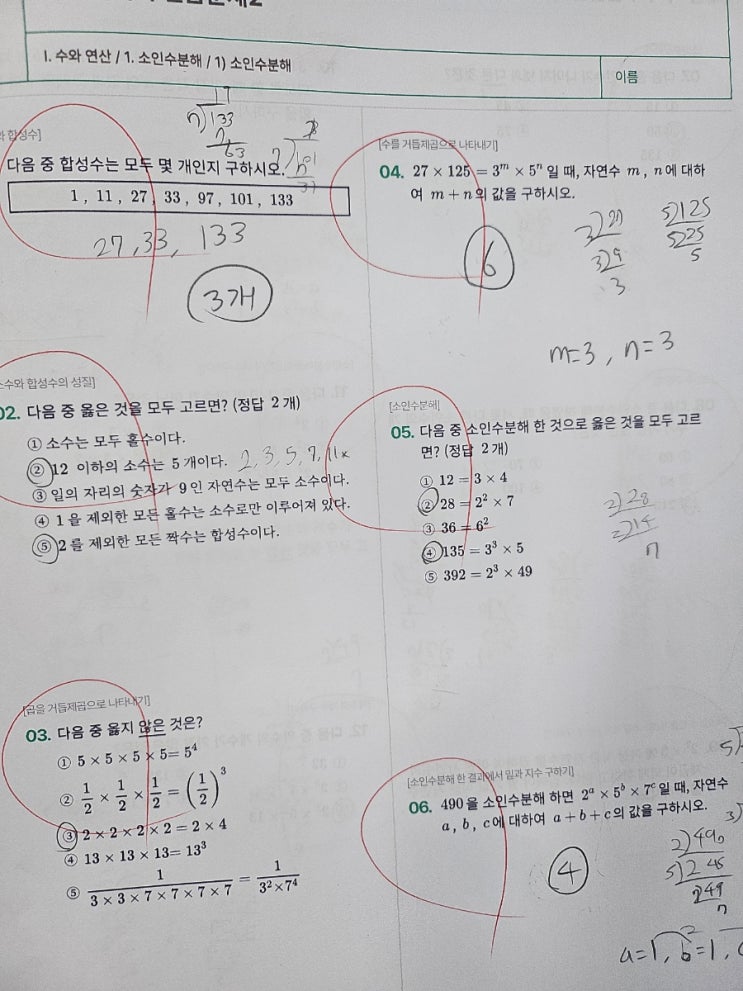 I. 수와 연산 / 1. 소인수분해 / 1) 소인수분해
이름
합성수]
다음 중 합성수는 모두 몇 개인지 구하시오.
1 , 11 , 27 , 33 , 97 , 101 , 133
27, 33, 133
3개
17
7)133
7
63
소수와 합성수의 성질]
02. 다음 중 옳은 것을 모두 고르면? (정답 2 개)
① 소수는 모두 홀수이다.
② 12 이하의 소수는 5 개이다. 2, 3, 5, 7, 11
③ 일의 자리의 숫자가 9 인 자연수는 모두 소수이다.
④ 1 을 제외한 모든 홀수는 소수로만 이루어져 있다.
⑤ 2 를 제외한 모든 짝수는 합성수이다.
[곱을 거듭제곱으로 나타내기]
03. 다음 중 옳지 않은 것은?
① 5 × 5 × 5 × 5 = 5⁴
② 1/2 × 1/2 × 1/2 = (1/2)³
③ 2 × 2 × 2 × 2 = 2 × 4
④ 13 × 13 × 13 = 13³
⑤ 1/(3 × 3 × 7 × 7 × 7 × 7) = 1/(3² × 7⁴)
[수를 거듭제곱으로 나타내기]
04. 27 × 125 = 3ᵐ × 5ⁿ 일 때, 자연수 m , n 에 대하
여 m + n 의 값을 구하시오.
6
3)27
3)9
3
5)125
5)25
5
m=3 , n=3
[소인수분해]
05. 다음 중 소인수분해 한 것으로 옳은 것을 모두 고르
면? (정답 2 개)
① 12 = 3 × 4
② 28 = 2² × 7
③ 36 = 6²
④ 135 = 3³ × 5
⑤ 392 = 2³ × 49
2)28
2)14
7
[소인수분해 한 결과에서 밑과 지수 구하기]
06. 490 을 소인수분해 하면 2ᵃ × 5ᵇ × 7ᶜ 일 때, 자연수
a , b , c 에 대하여 a + b + c 의 값을 구하시오.
4
2)490
5)245
249
7
a=1, b=1,